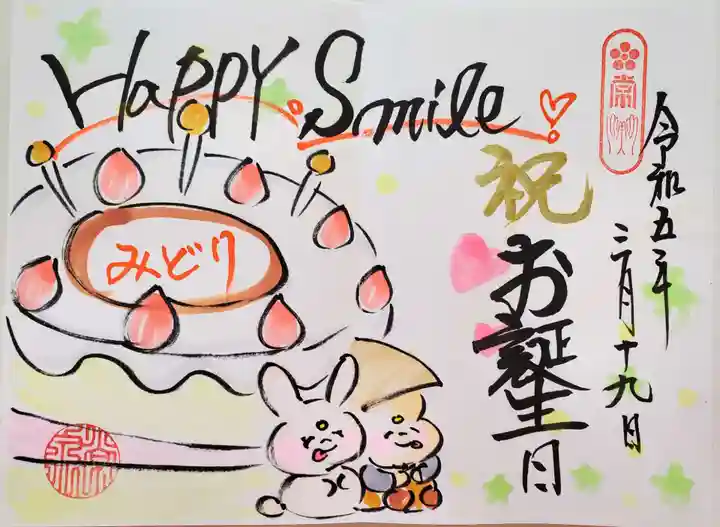 HAPPY Smile
みどり
祝
お誕生日
令和五年
三月十九日